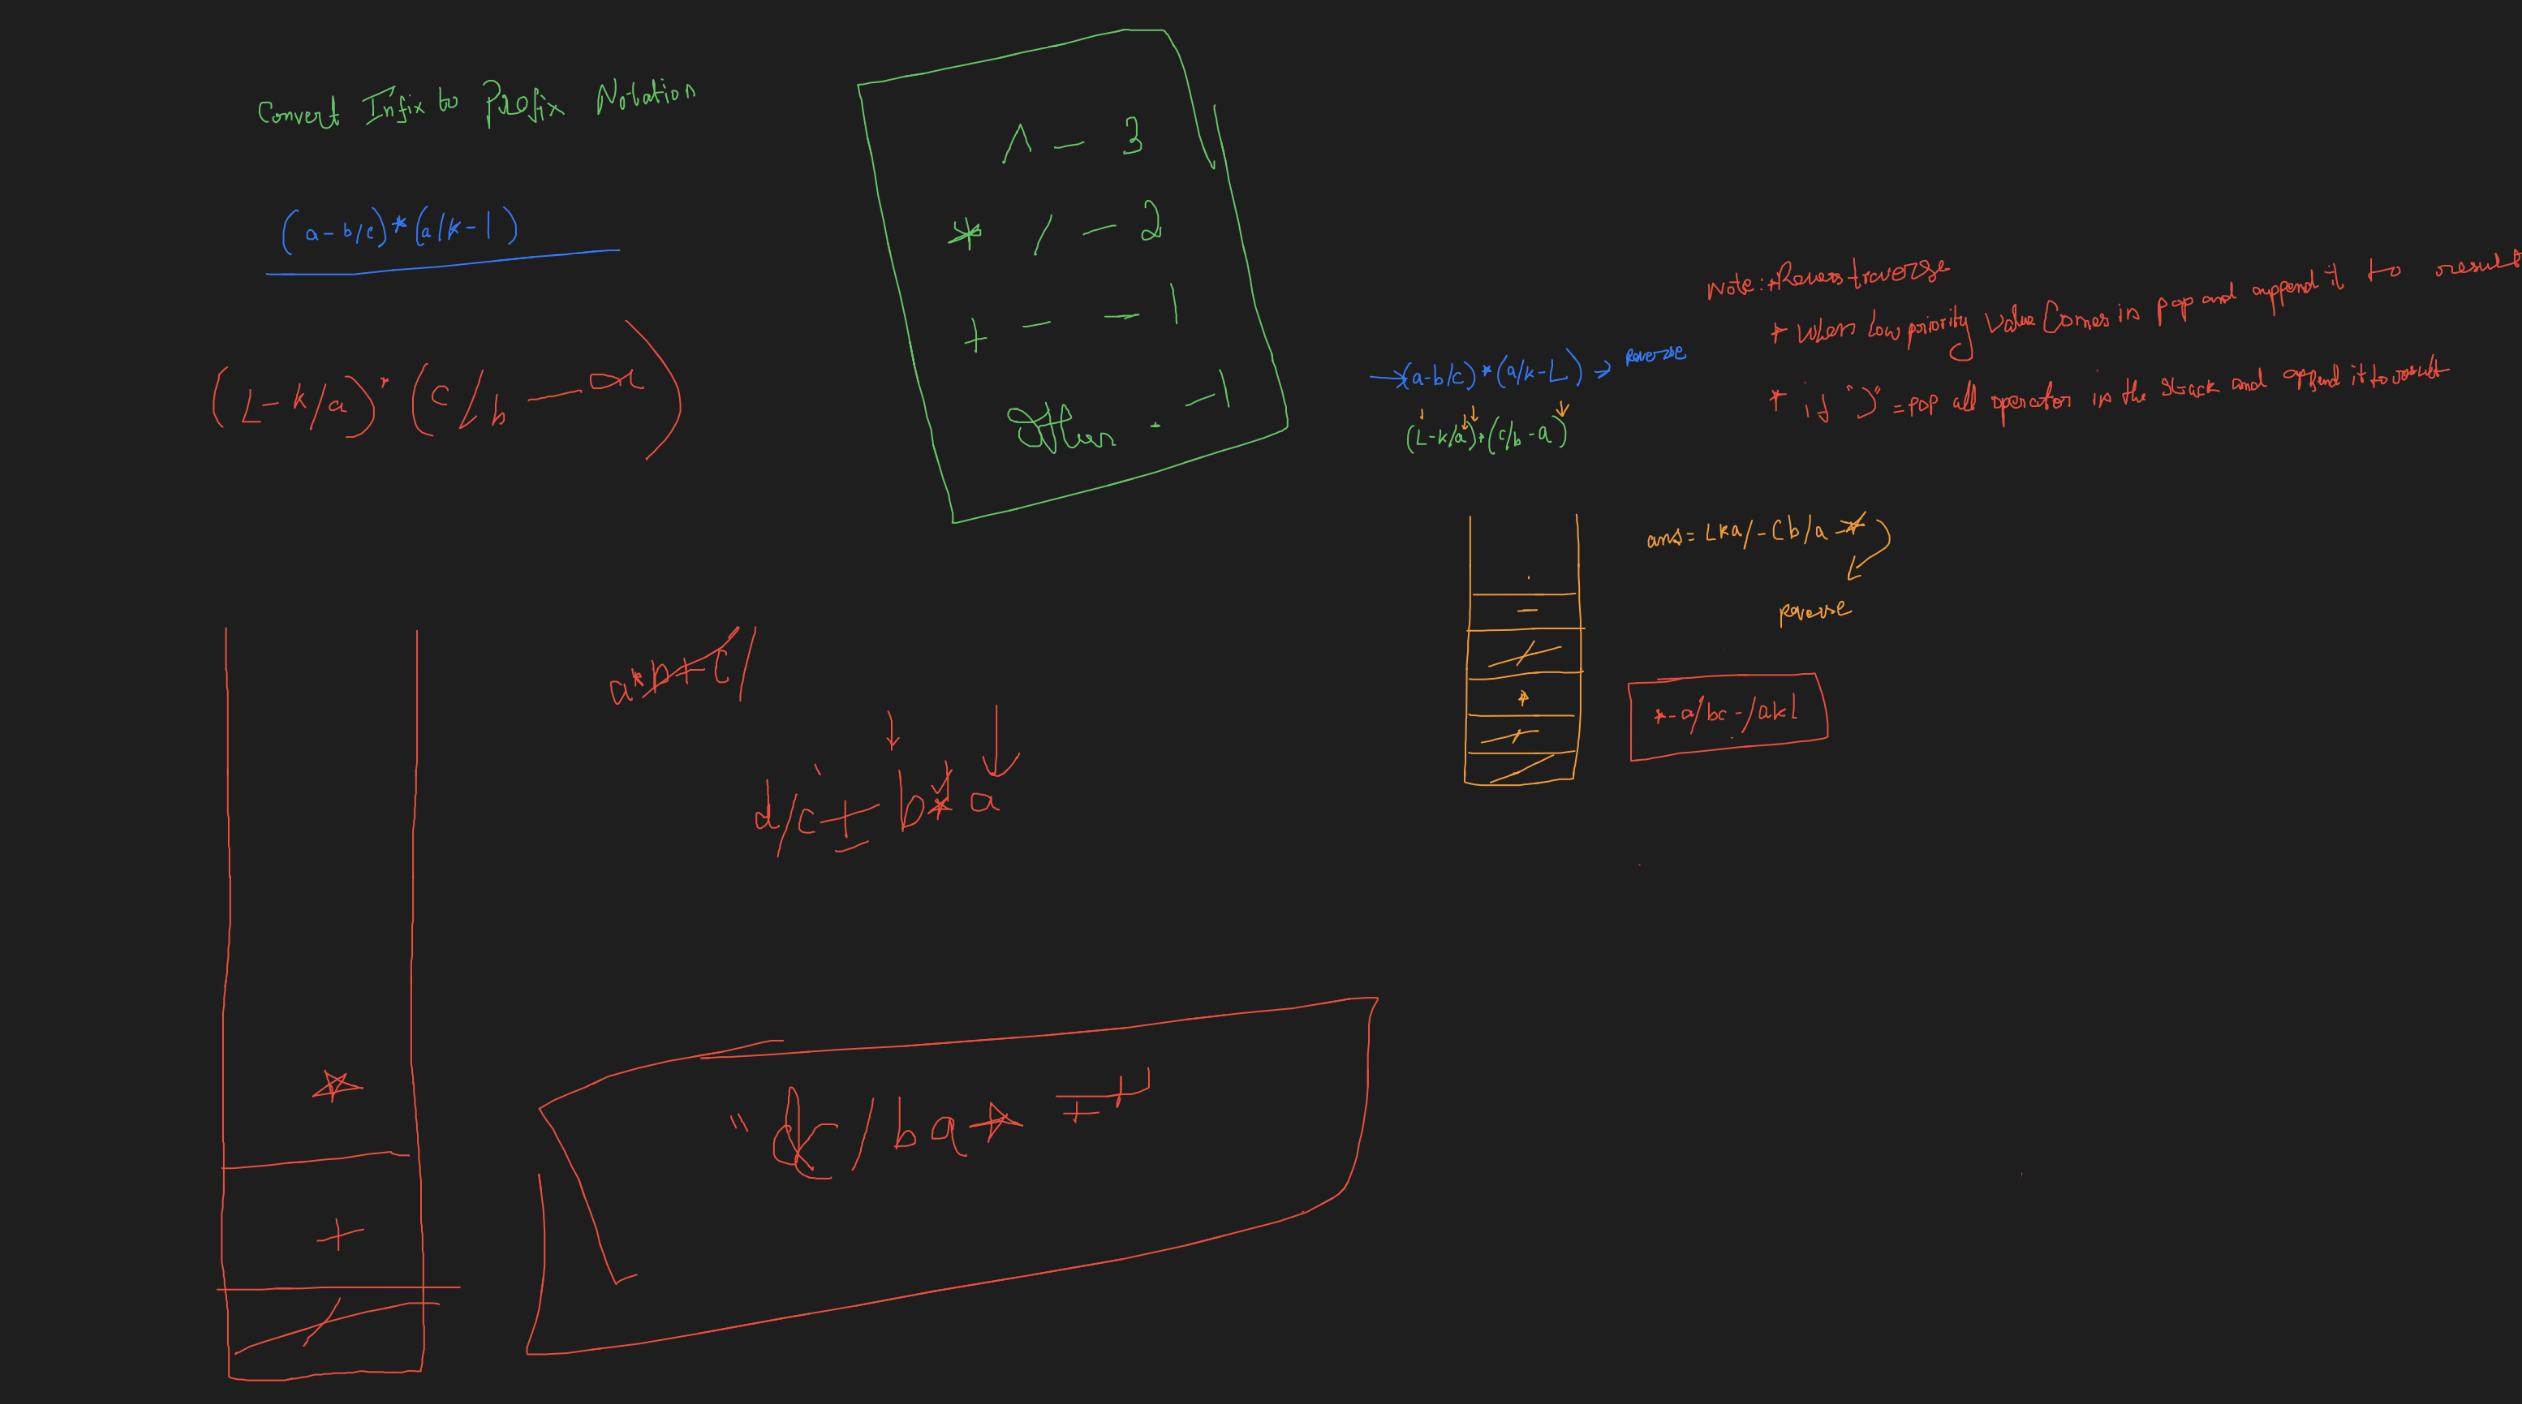 Convert Infix to Prefix Notation
(a-b/c)*(a/k-l)
(L-k/a)*(c/b-a)
^ - 3
* / - 2
+ - - 1
Other . -1
Note:* Revers traverse
* When low priority value Comes in pop and append it to result
* if ")" = pop all operator in the stack and append it to result
→(a-b/c)*(a/k-L) → Reverse
(L-k/a)*(c/b-a)
ans = Lka/-Cb/a-*
Reverse
-
/
*
*-a/bc-/akl
a*b+c/
d/c+b*a
*
+
/
"dc/ba*+"